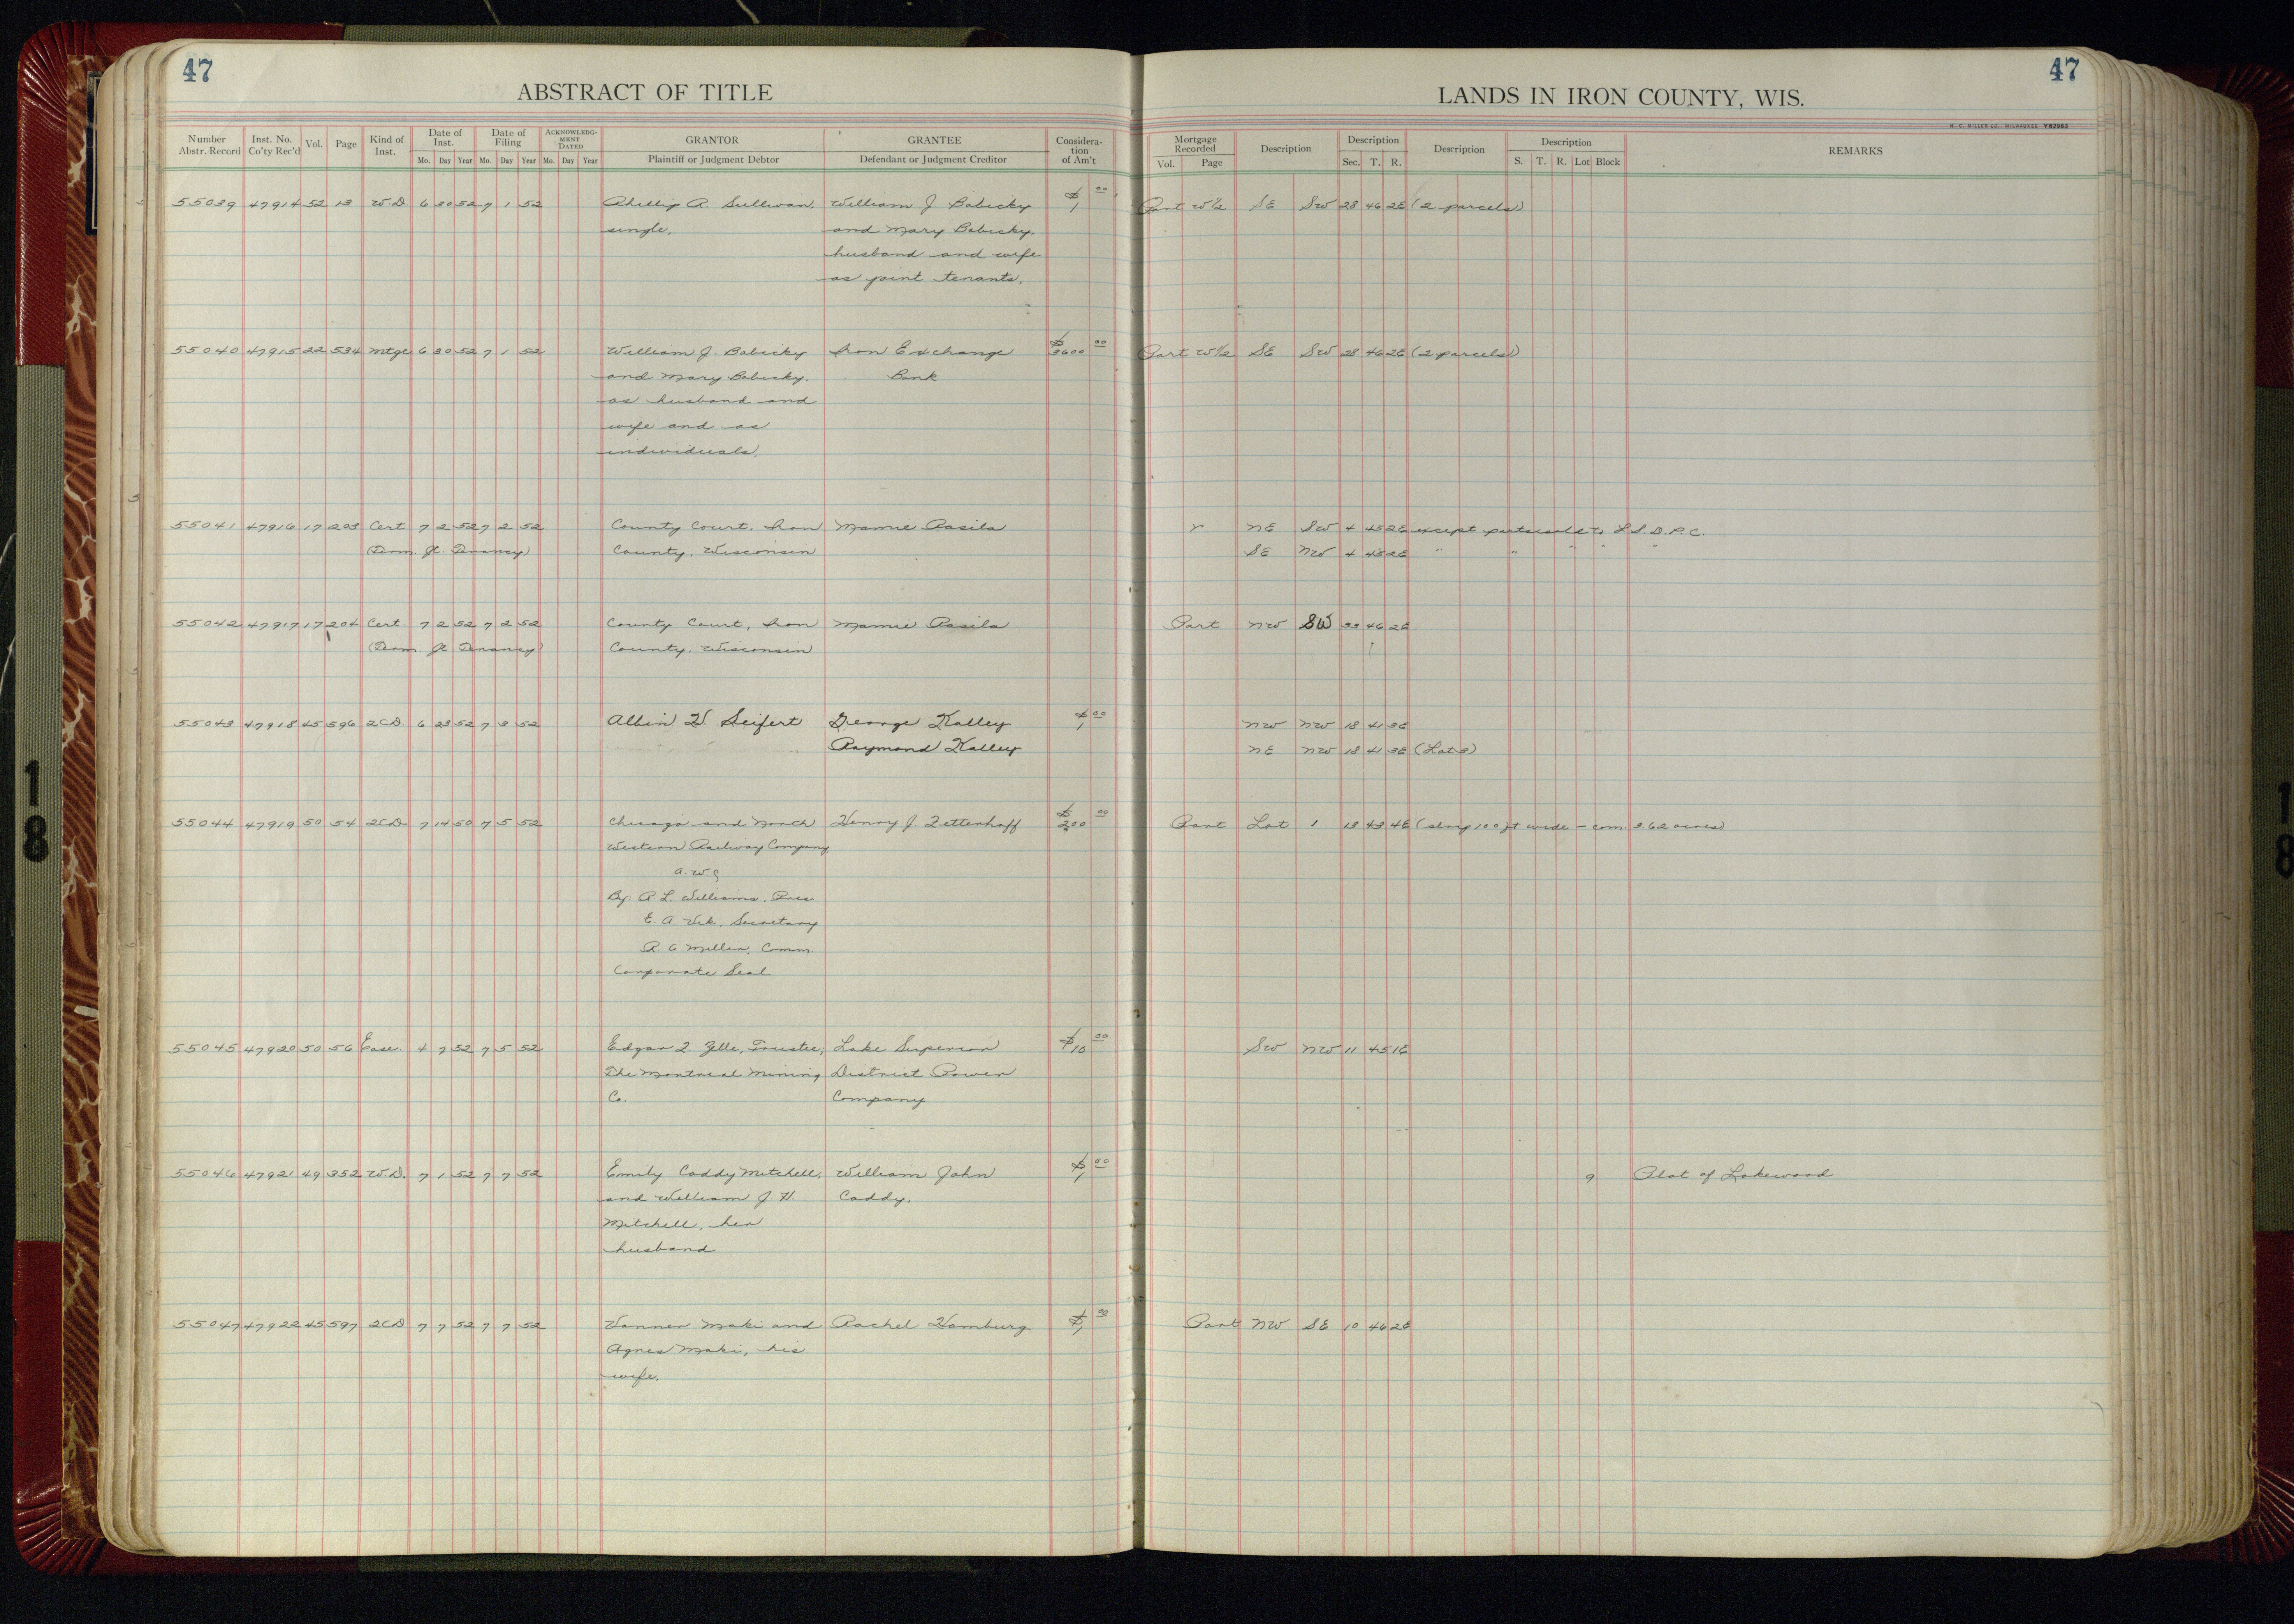 47
ABSTRACT OF TITLE
Number Abstr. Record Inst. No. Co'ty Rec'd Vol. Page Kind of Inst. Date of Inst. Date of Filing ACKNOWLEDGMENT DATED GRANTOR GRANTEE Consideration of Am't
Mo. Day Year Mo. Day Year Mo. Day Year Plaintiff or Judgment Debtor Defendant or Judgment Creditor
55039 47914 52 13 W.D 6 30 52 7 1 52 Phillip A. Sullivan, William J Babicky $1 00
single. and Mary Babicky,
husband and wife
as joint tenants.
55040 47915 22 534 Mtge 6 30 52 7 1 52 William J. Babicky Iron Exchange $3600 00
and Mary Babicky, Bank
as husband and
wife and as
individuals.
55041 47916 17 203 Cert 7 2 52 7 2 52 County Court, Iron Mamie Rasila
(Term. Jt. Tenancy) County, Wisconsin
55042 47917 17 204 Cert. 7 2 52 7 2 52 County Court, Iron Mamie Rasila
(Term. Jt Tenancy) County, Wisconsin
55043 47918 45 596 2CD 6 23 52 7 3 52 Albin H. Seifert George Kalley $1 00
Raymond Kalley
55044 47919 50 54 2CD 7 14 50 7 5 52 Chicago and North Henry J. Zetterhoff $200 00
Western Railway Company
By: R. L. Williams, Pres
E. A. Vik, Secretary
R. C. Miller, Comm.
Corporate Seal
55045 47920 50 56 Ease. 4 7 52 7 5 52 Edgar F. Zelle, Trustee, Lake Superior $10 00
The Montreal Mining District Power
Co. Company
55046 47921 49 352 W.D. 7 1 52 7 7 52 Emily Caddy Mitchell, William John $1 00
and William J. H. Caddy.
Mitchell, her
husband
55047 47922 45 597 2CD 7 7 52 7 7 52 Maki and Rachel Hamburg $1 00
Agnes Maki, his
wife.
47
LANDS IN IRON COUNTY, WIS.
H. C. MILLER CO., MILWAUKEE Y82963
Mortgage Recorded Description Description Description Description REMARKS
Vol. Page Sec. T. R. S. T. R. Lot Block
Part W½ SE SW 28 46 2E (2 parcels)
Part W½ SE SW 28 46 2E (2 parcels)
NE SW 4 45 2E except parts sold to L.S.D.P.C.
SE NW 4 45 2E " " " "
Part NW SW 33 46 2E
NW NW 18 41 3E
NE NW 18 41 3E (Lot 3)
Part Lot 1 13 43 4E (strip 100 ft wide - com. 3.62 acres)
SW NW 11 45 1E
9 Plat of Lakewood
Part NW SE 10 46 2E
18
18